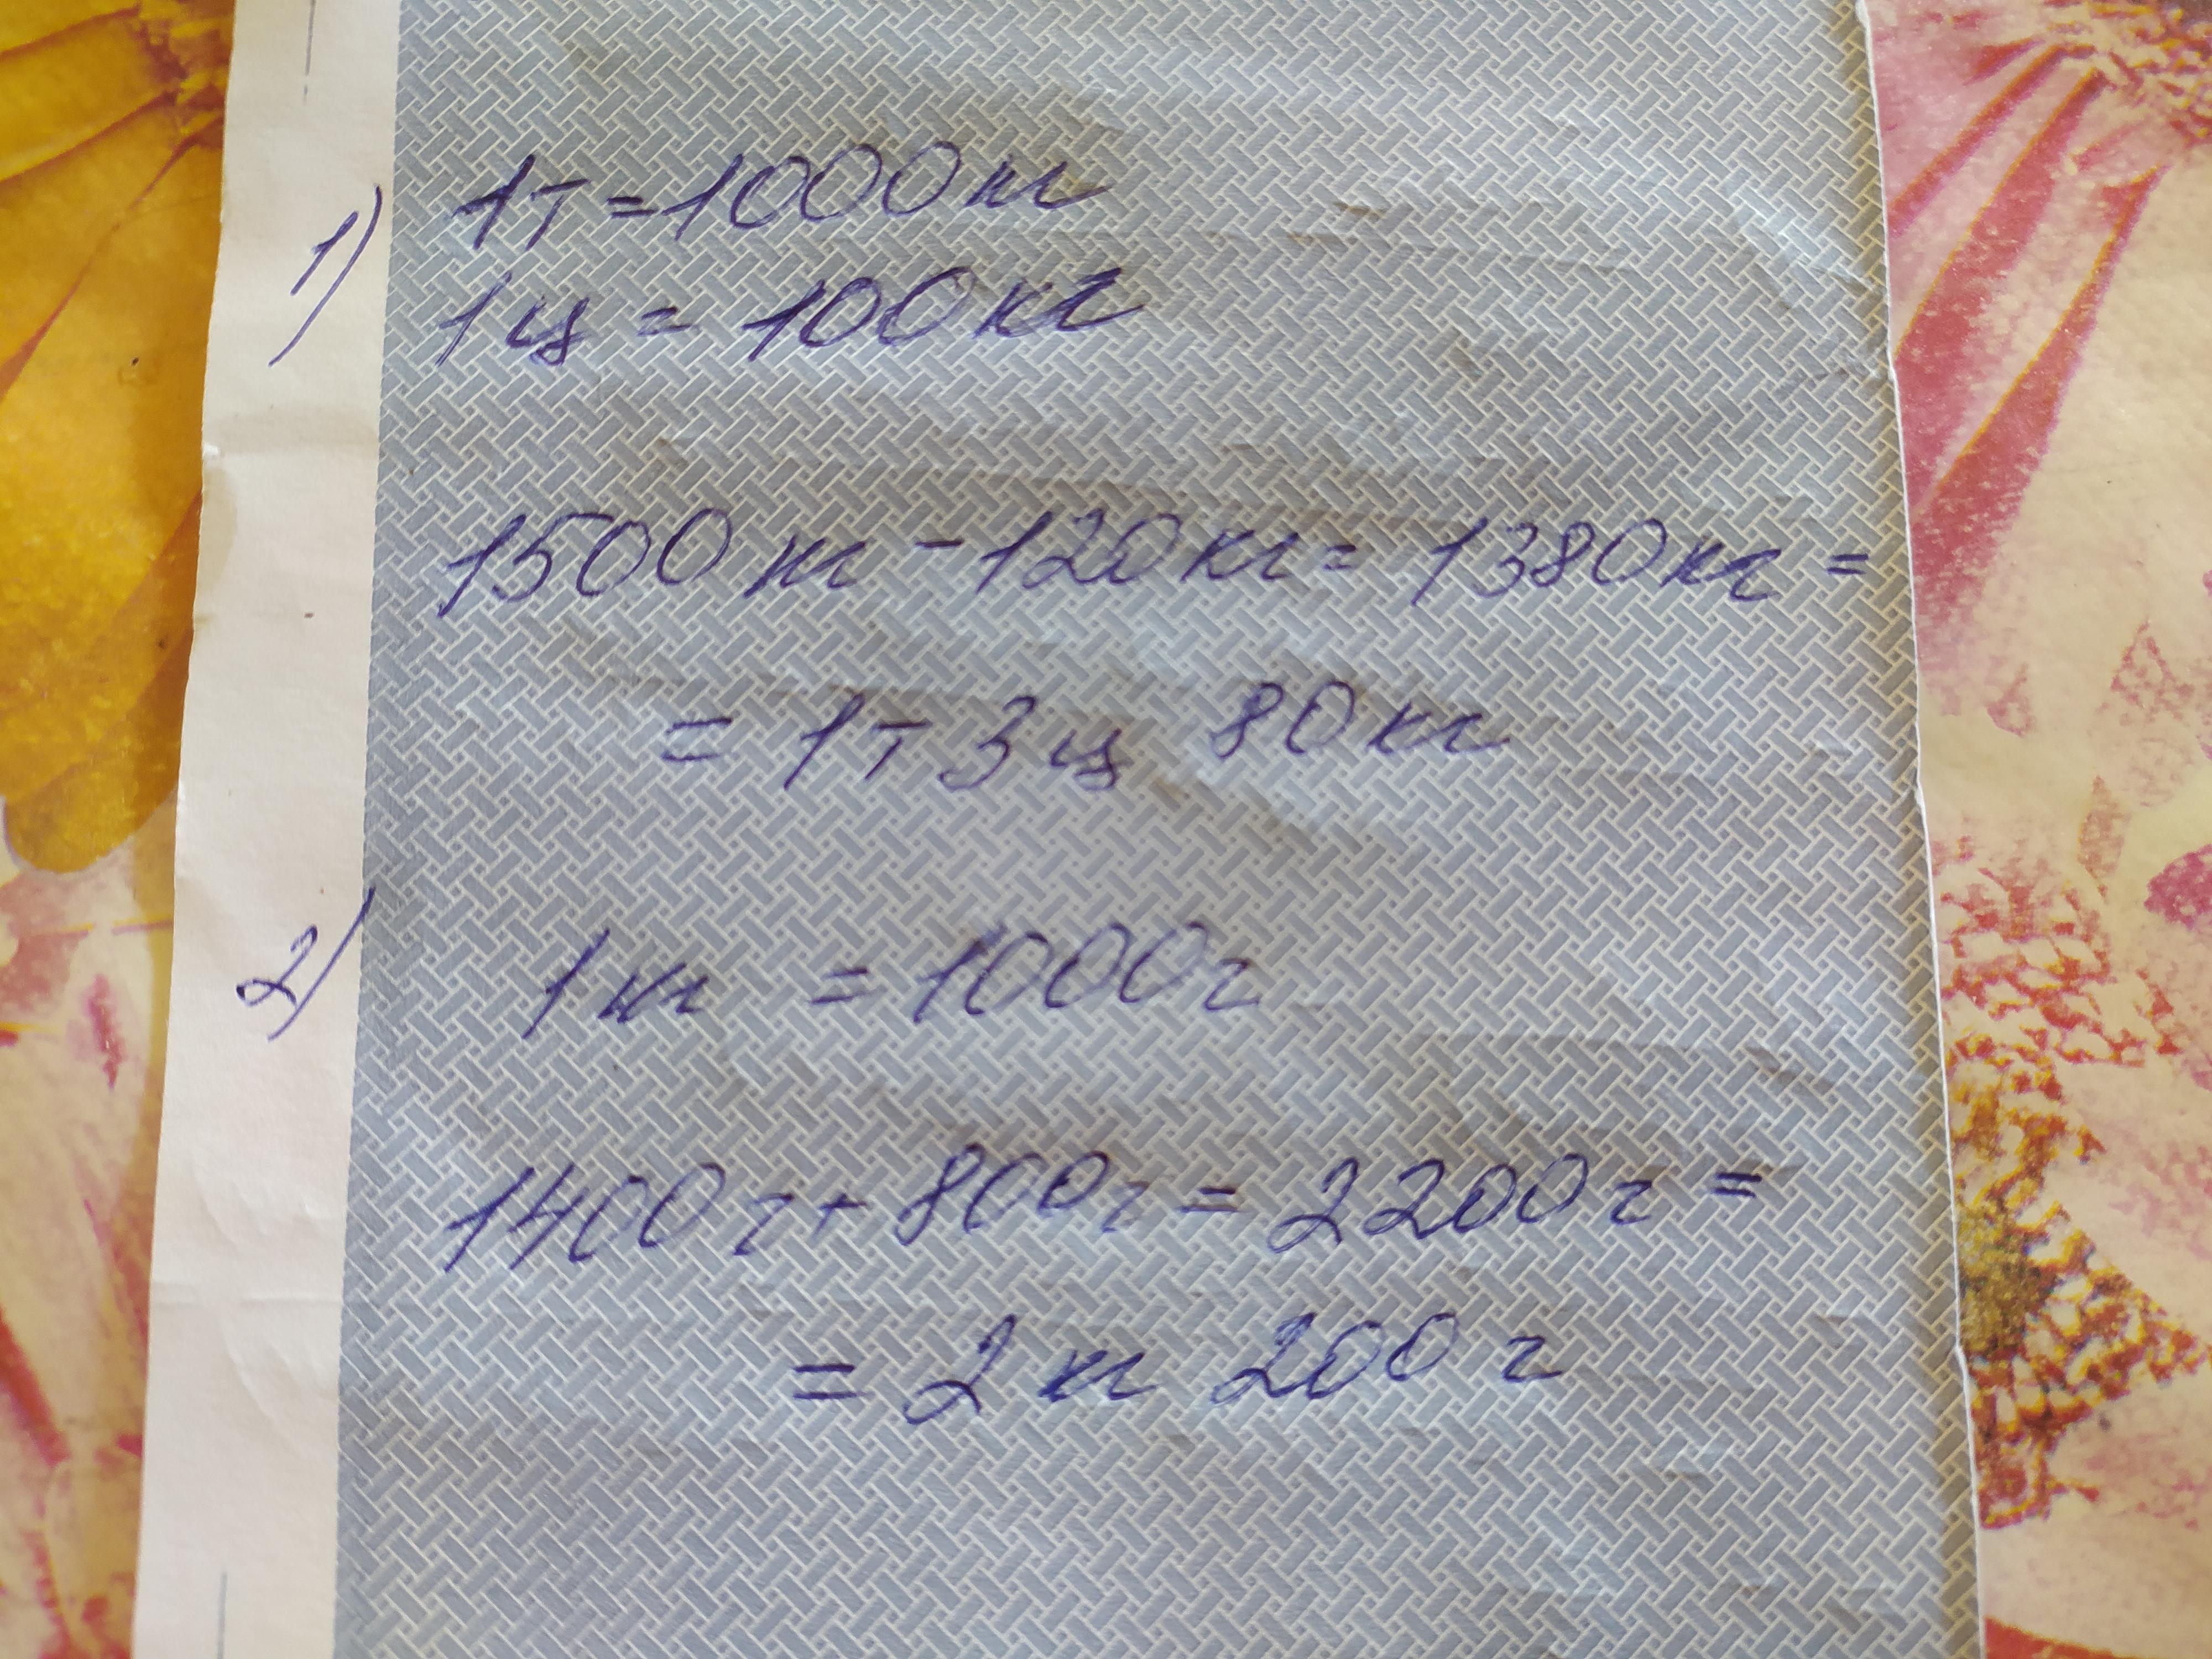 1) 1т = 1000кг
1ц = 100кг
1500 кг - 120кг = 1380кг =
= 1т 3ц 80кг
2) 1кг = 1000г
1400г + 800г = 2200г =
= 2кг 200г